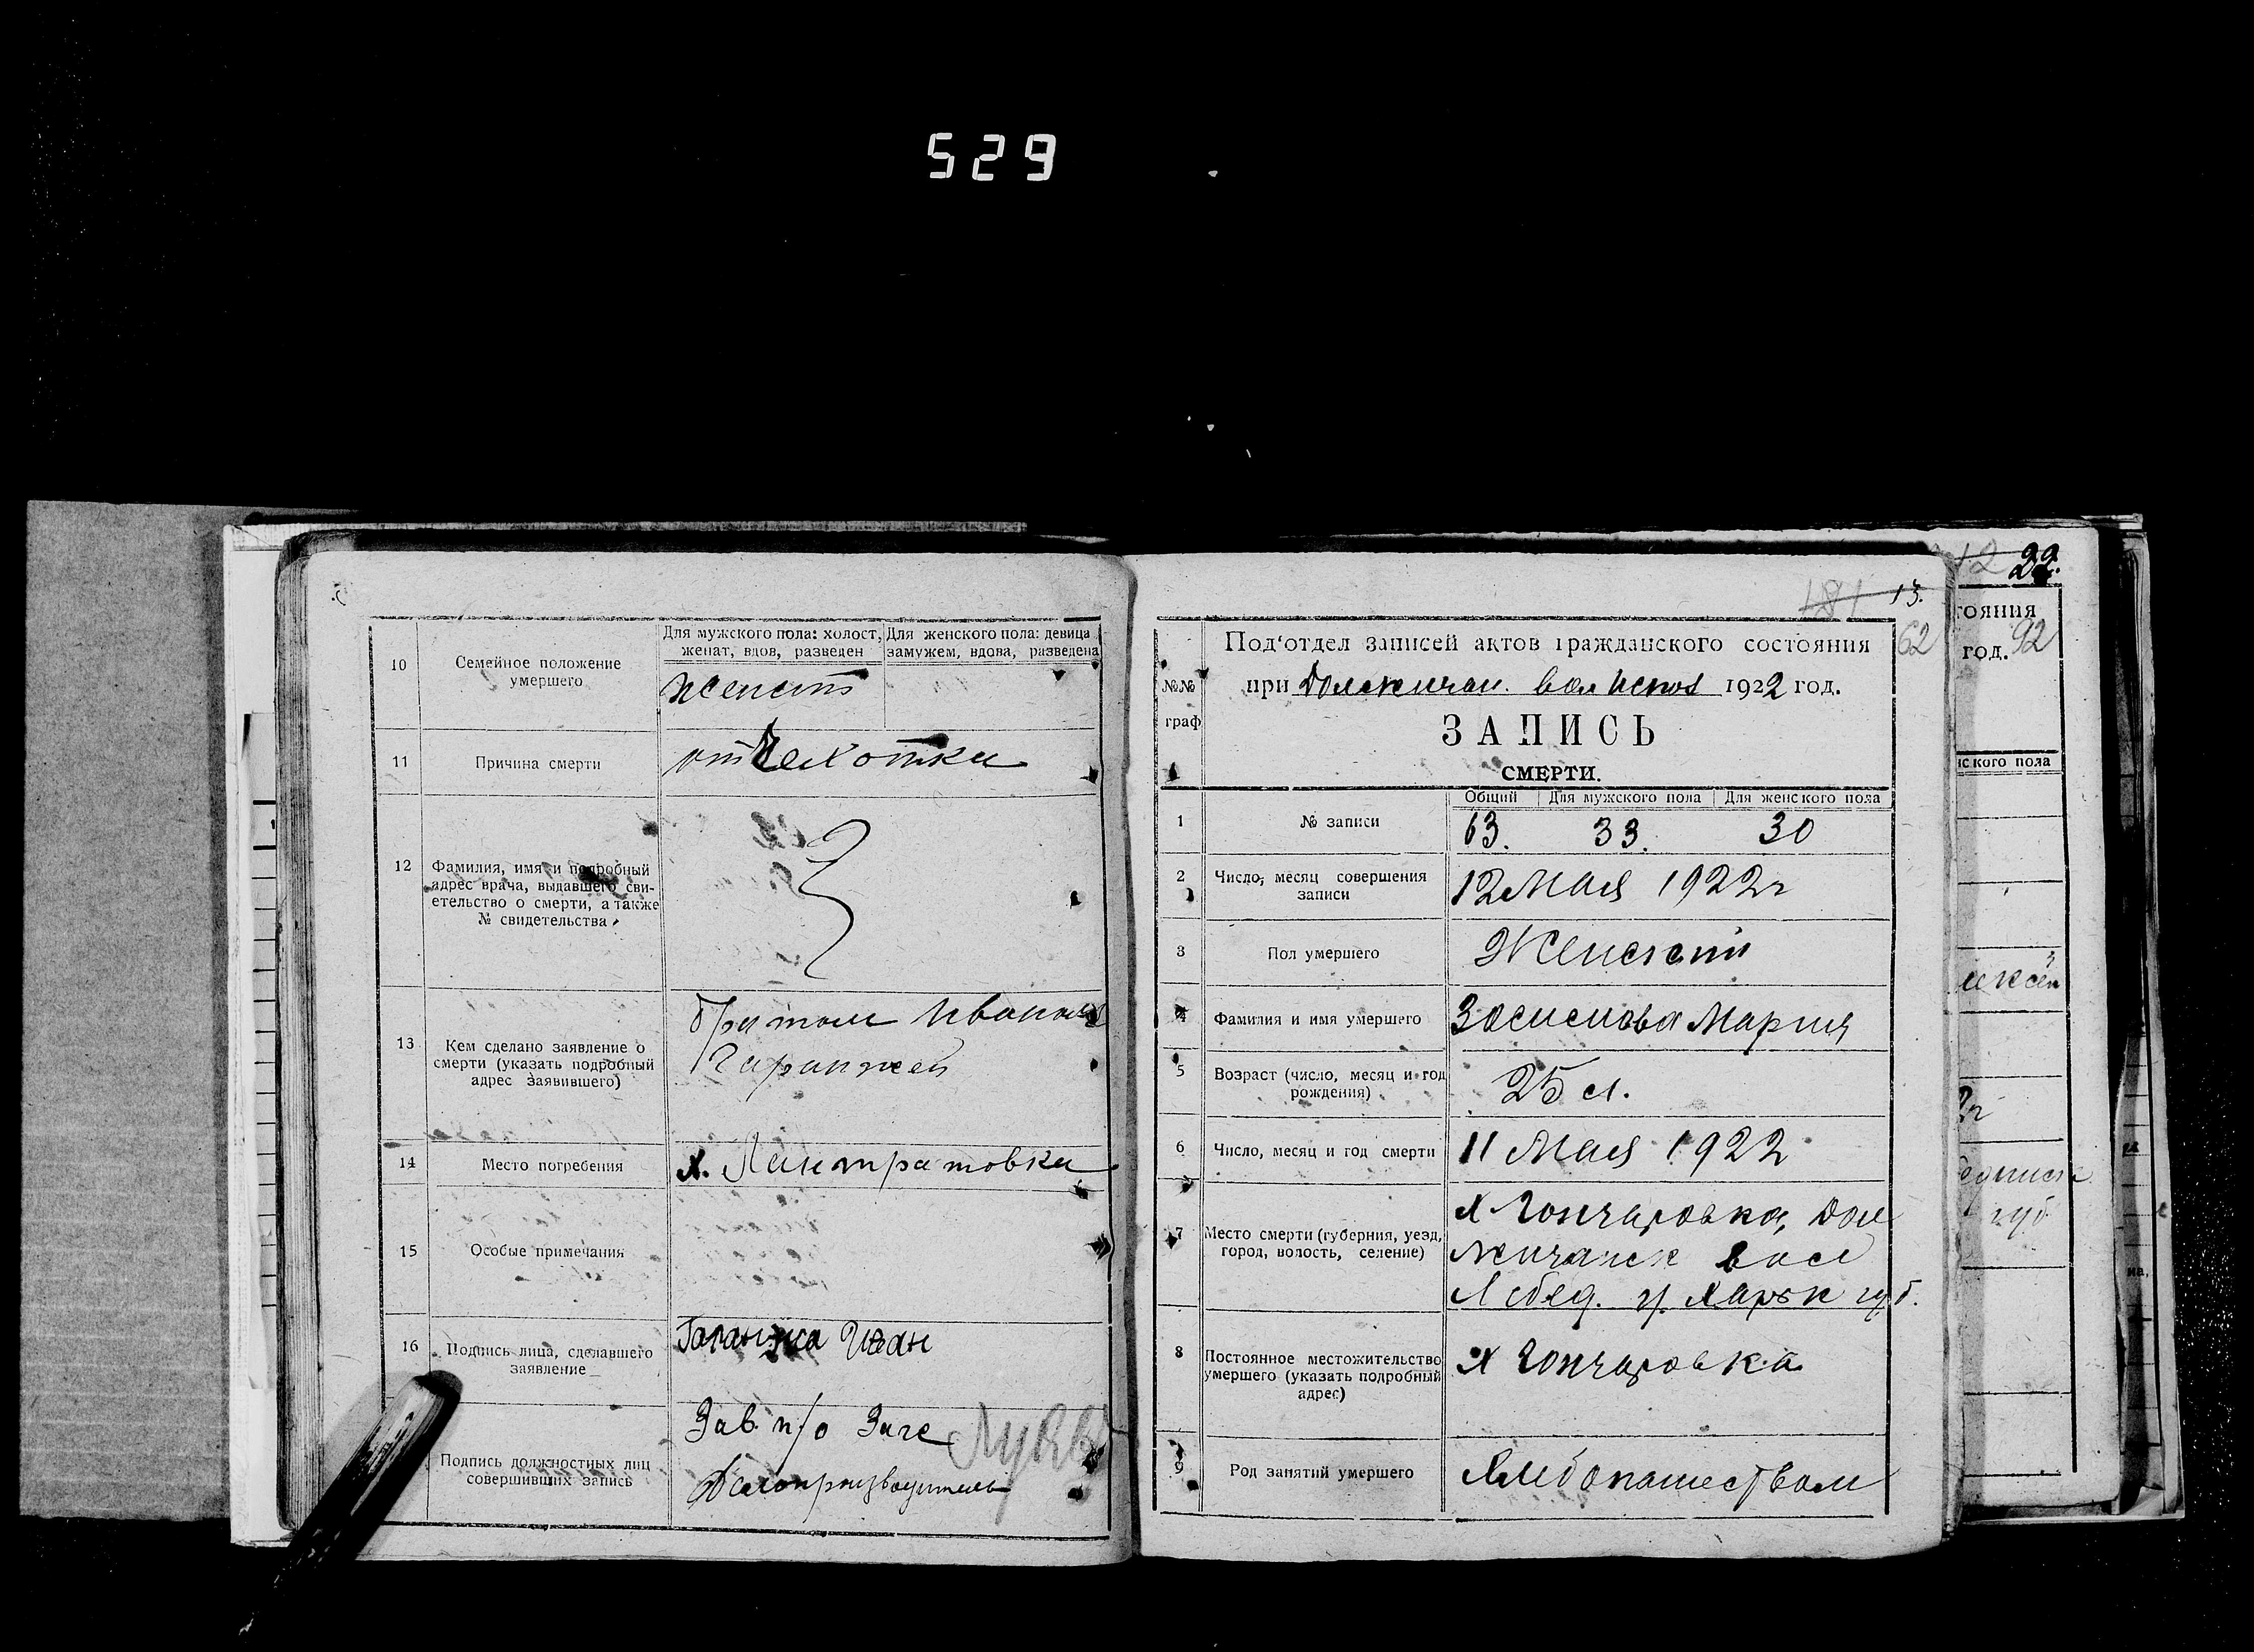 529
10
Семейное положение
умершего
Для мужского пола: холост,
женат, вдов, разведен
Для женского пола: девица
замужем, вдова, разведена
женат
11
Причина смерти
от чахотки
12
Фамилия, имя и подробный
адрес врача, выдавшего сви-
етельство о смерти, а также
№ свидетельства
13
Кем сделано заявление о
смерти (указать подробный
адрес заявившего)
братом Иваном
14
Место погребения
х. Лантратовка
15
Особые примечания
16
Подпись лица, сделавшего
заявление
Иван
Подпись должностных лиц
совершивших запись
Зав. п/о Загс
Делопроизводитель
181 13.
62
Под'отдел записей актов гражданского состояния
при Должичан. вол испол 1922 год.
№№
граф
ЗАПИСЬ
СМЕРТИ.
Общий
Для мужского пола
Для женского пола
1
№ записи
63. 33. 30
2
Число, месяц совершения
записи
12 Мая 1922 г
3
Пол умершего
Женский
4
Фамилия и имя умершего
Мария
5
Возраст (число, месяц и год
рождения)
25 л.
6
Число, месяц и год смерти
11 Мая 1922
7
Место смерти (губерния, уезд,
город, волость, селение)
х Гончаровка, Дол
жичанск вол
Лебед. у. Харьк губ.
8
Постоянное местожительство
умершего (указать подробный
адрес)
х Гончаровка
9
Род занятий умершего
Хлебопашеством
12 22.
тояния
год. 92
нского пола
губ